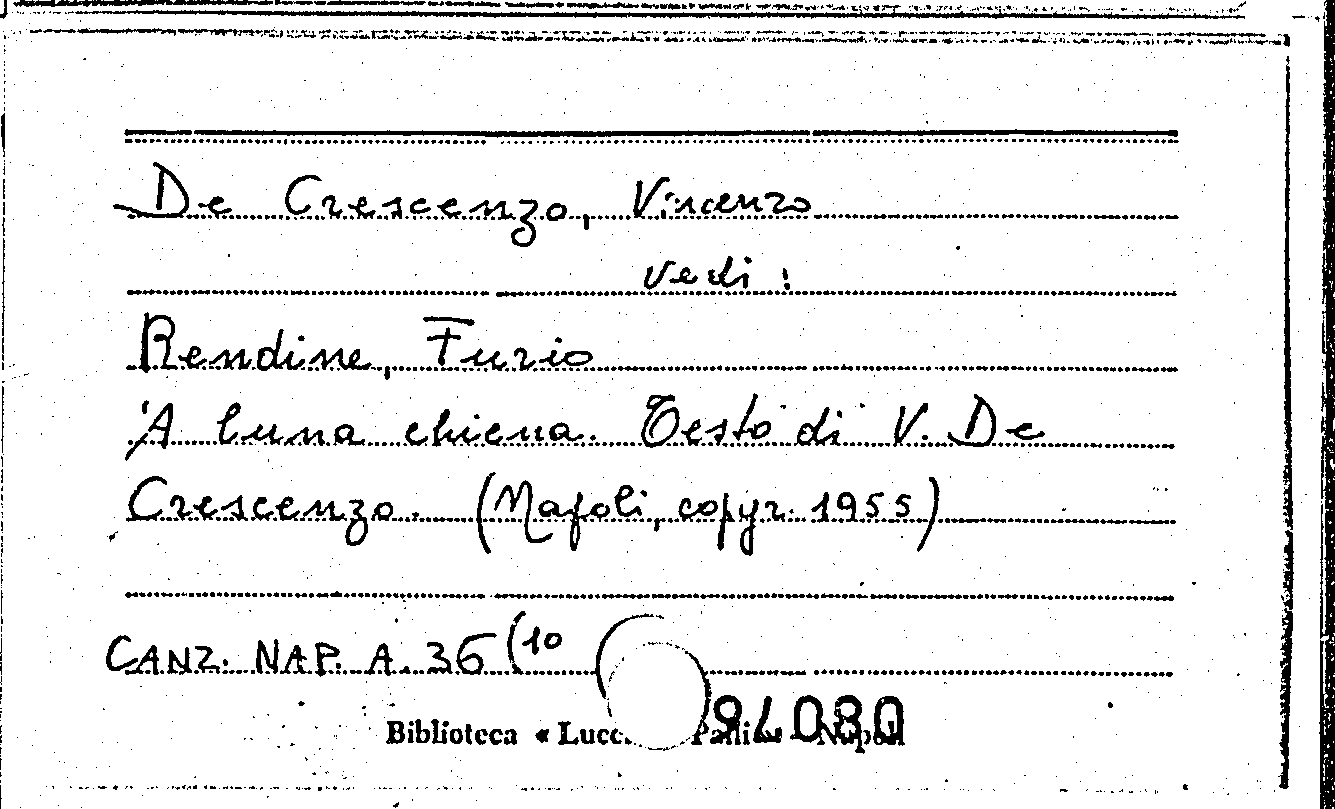 De Crescenzo, Vincenzo
vedi:
Rendine, Furio
'A luna chiena. Testo di V. De
Crescenzo. (Napoli, copyr. 1955)
CANZ. NAP. A. 36 (10
Biblioteca « Lucc